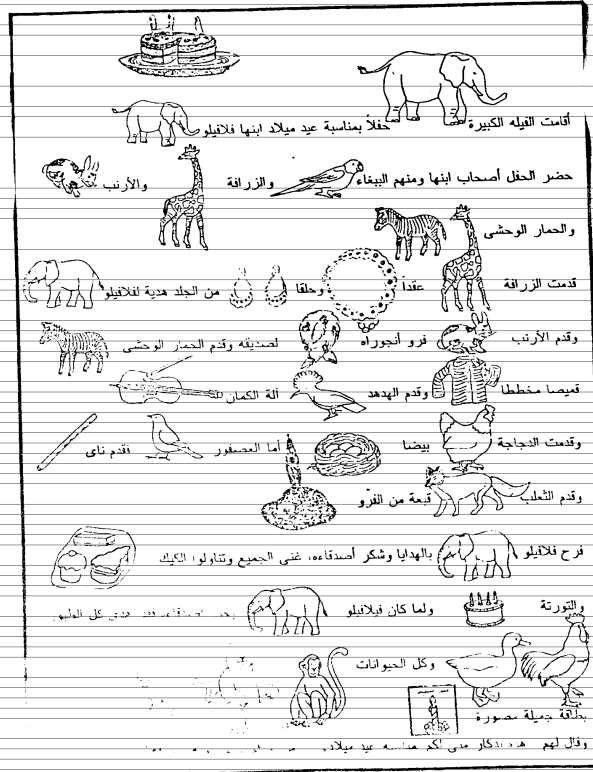 أقامت الفيله الكبيرة حفلاً بمناسبة عيد ميلاد ابنها فلافيلو
حضر الحفل أصحاب ابنها ومنهم الببغاء والزرافة والأرنب
والحمار الوحشى
قدمت الزرافة عقداً وحلقا من الجلد هدية لفلافيلو
وقدم الأرنب فرو أنجوراه لصديقه وقدم الحمار الوحشى
قميصا مخططا وقدم الهدهد ألة الكمان
وقدمت الدجاجة بيضا أما العصفور فقدم ناى
وقدم الثعلب قبعة من الفرّو
فرح فلافيلو بالهدايا وشكر أصدقاءه، غنى الجميع وتناولوا الكيك
والتورتة ولما كان فيلافيلو كل الطيور
وكل الحيوانات
بطاقة جميلة مصورة
وقال لهم عيد ميلاد